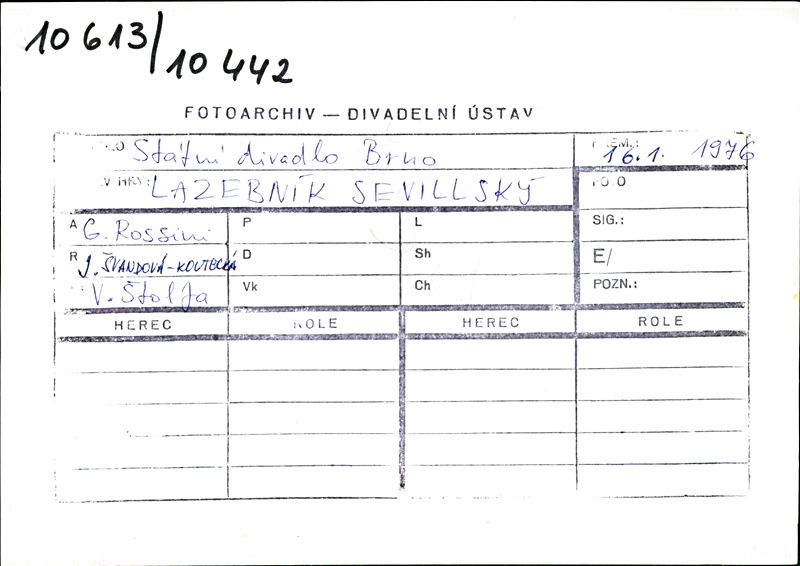 10 613/10 442
FOTOARCHIV — DIVADELNÍ ÚSTAV
Státní divadlo Brno
16.1. 1976
LAZEBNÍK SEVILLSKÝ
A G. Rossini P L SIG.:
R J. ŠVANDOVÁ-KOUTECKÁ D Sh E/
V. Štolfa Vk Ch POZN.:
HEREC ROLE HEREC ROLE